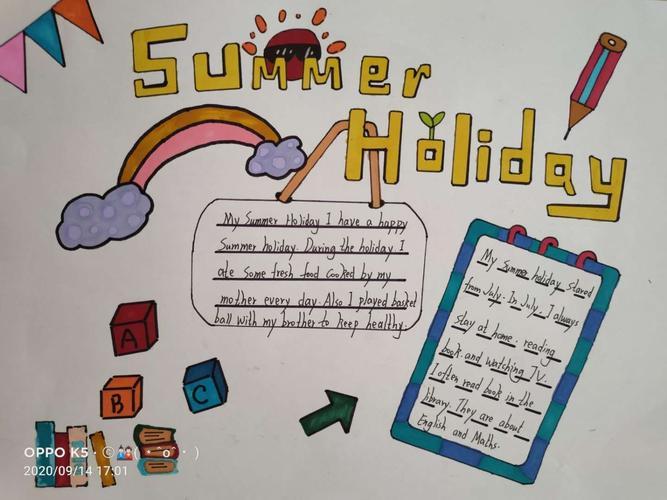 Summer
Holiday
My Summer Holiday I have a happy
Summer holiday. During the holiday I
ate some fresh food cooked by my
mother every day. Also I played basket
ball with my brother to keep healthy.
My Summer holiday stared
from July. In July. I always
stay at home. reading
book. and watching TV.
I often read book in the
library. They are about
English and Maths.
A
B
C
OPPO K5 · ©
2020/09/14 17:01